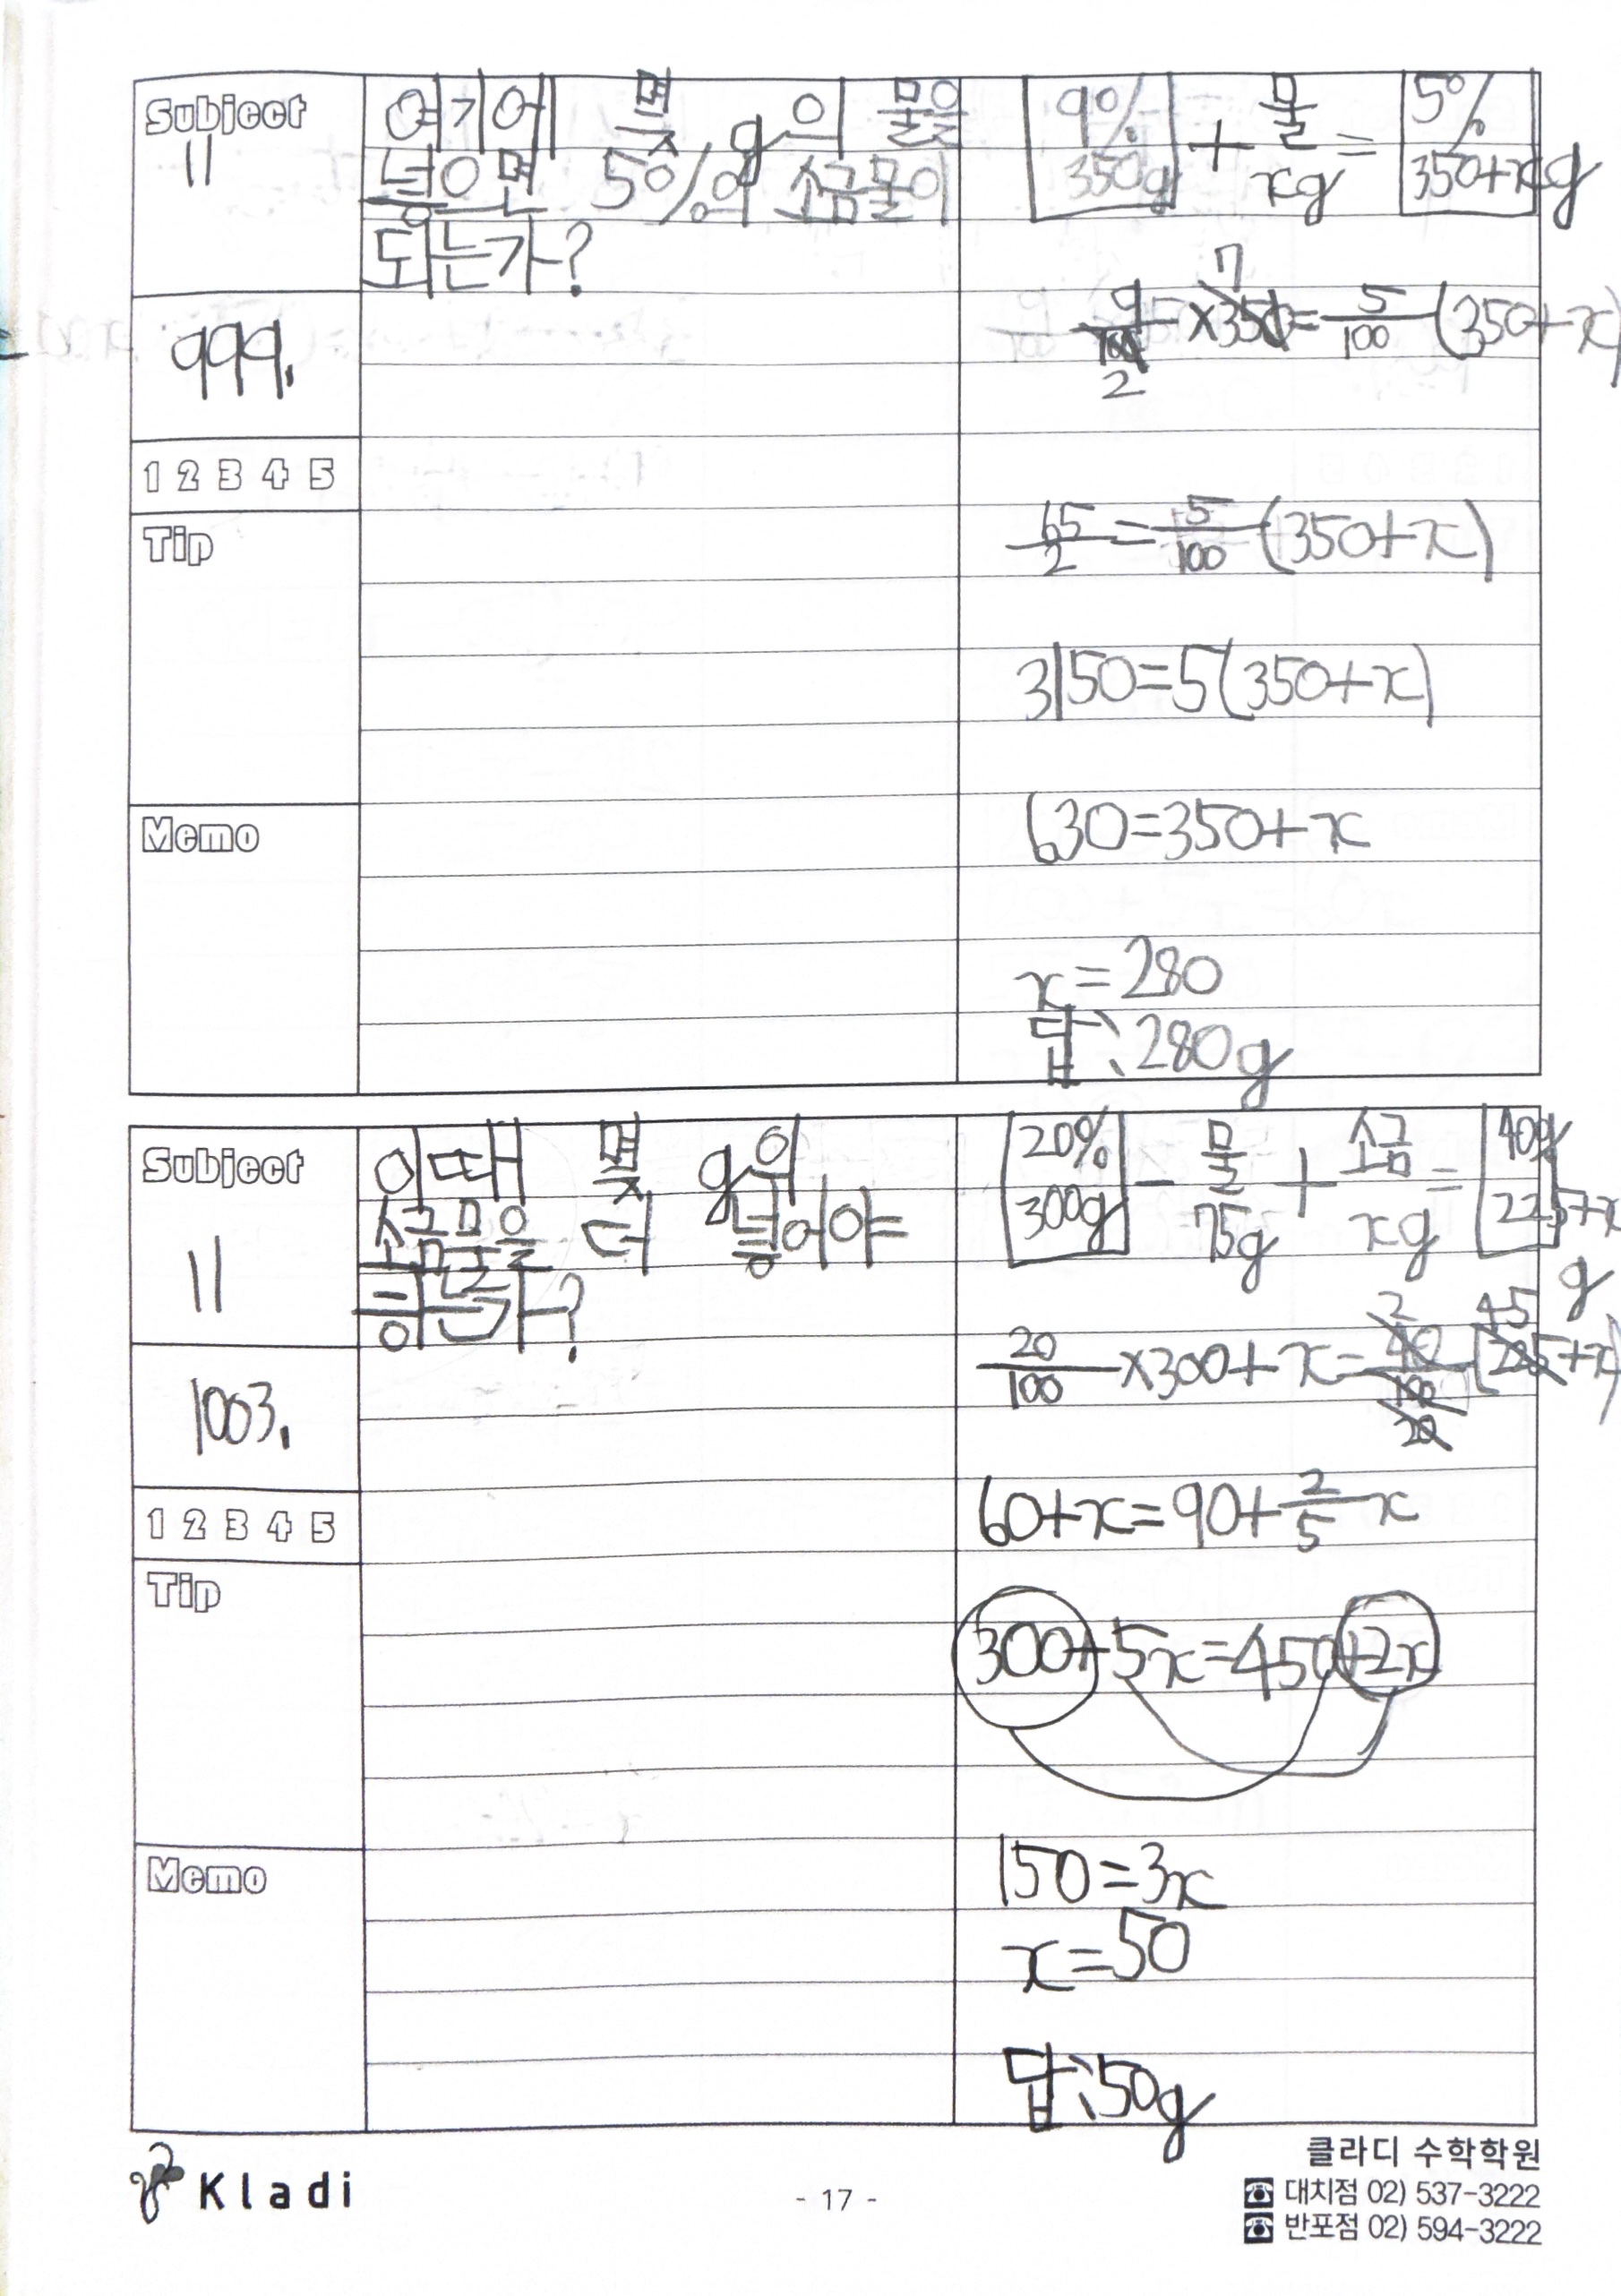 Subject
11
여기에 몇 g의 물을
넣으면 5%의 소금물이
되는가?
999.
1 2 3 4 5
Tip
Memo
9% 350g + 물 xg = 5% 350+xg
9/100 × 350 = 5/100 (350+x)
7
2
65/2 = 5/100 (350+x)
3150=5(350+x)
630=350+x
x=280
답: 280g
Subject
11
이때 몇 g의
소금물을 더 넣어야
하는가?
1003.
1 2 3 4 5
Tip
Memo
20% 300g - 물 75g + 소금 xg = 40% 225+x g
20/100 ×300+x= 40/100 (225+x)
2
45
20
60+x=90+2/5 x
300+5x=450+2x
150=3x
x=50
답: 50g
Kladi
- 17 -
클라디 수학학원
☎ 대치점 02) 537-3222
☎ 반포점 02) 594-3222